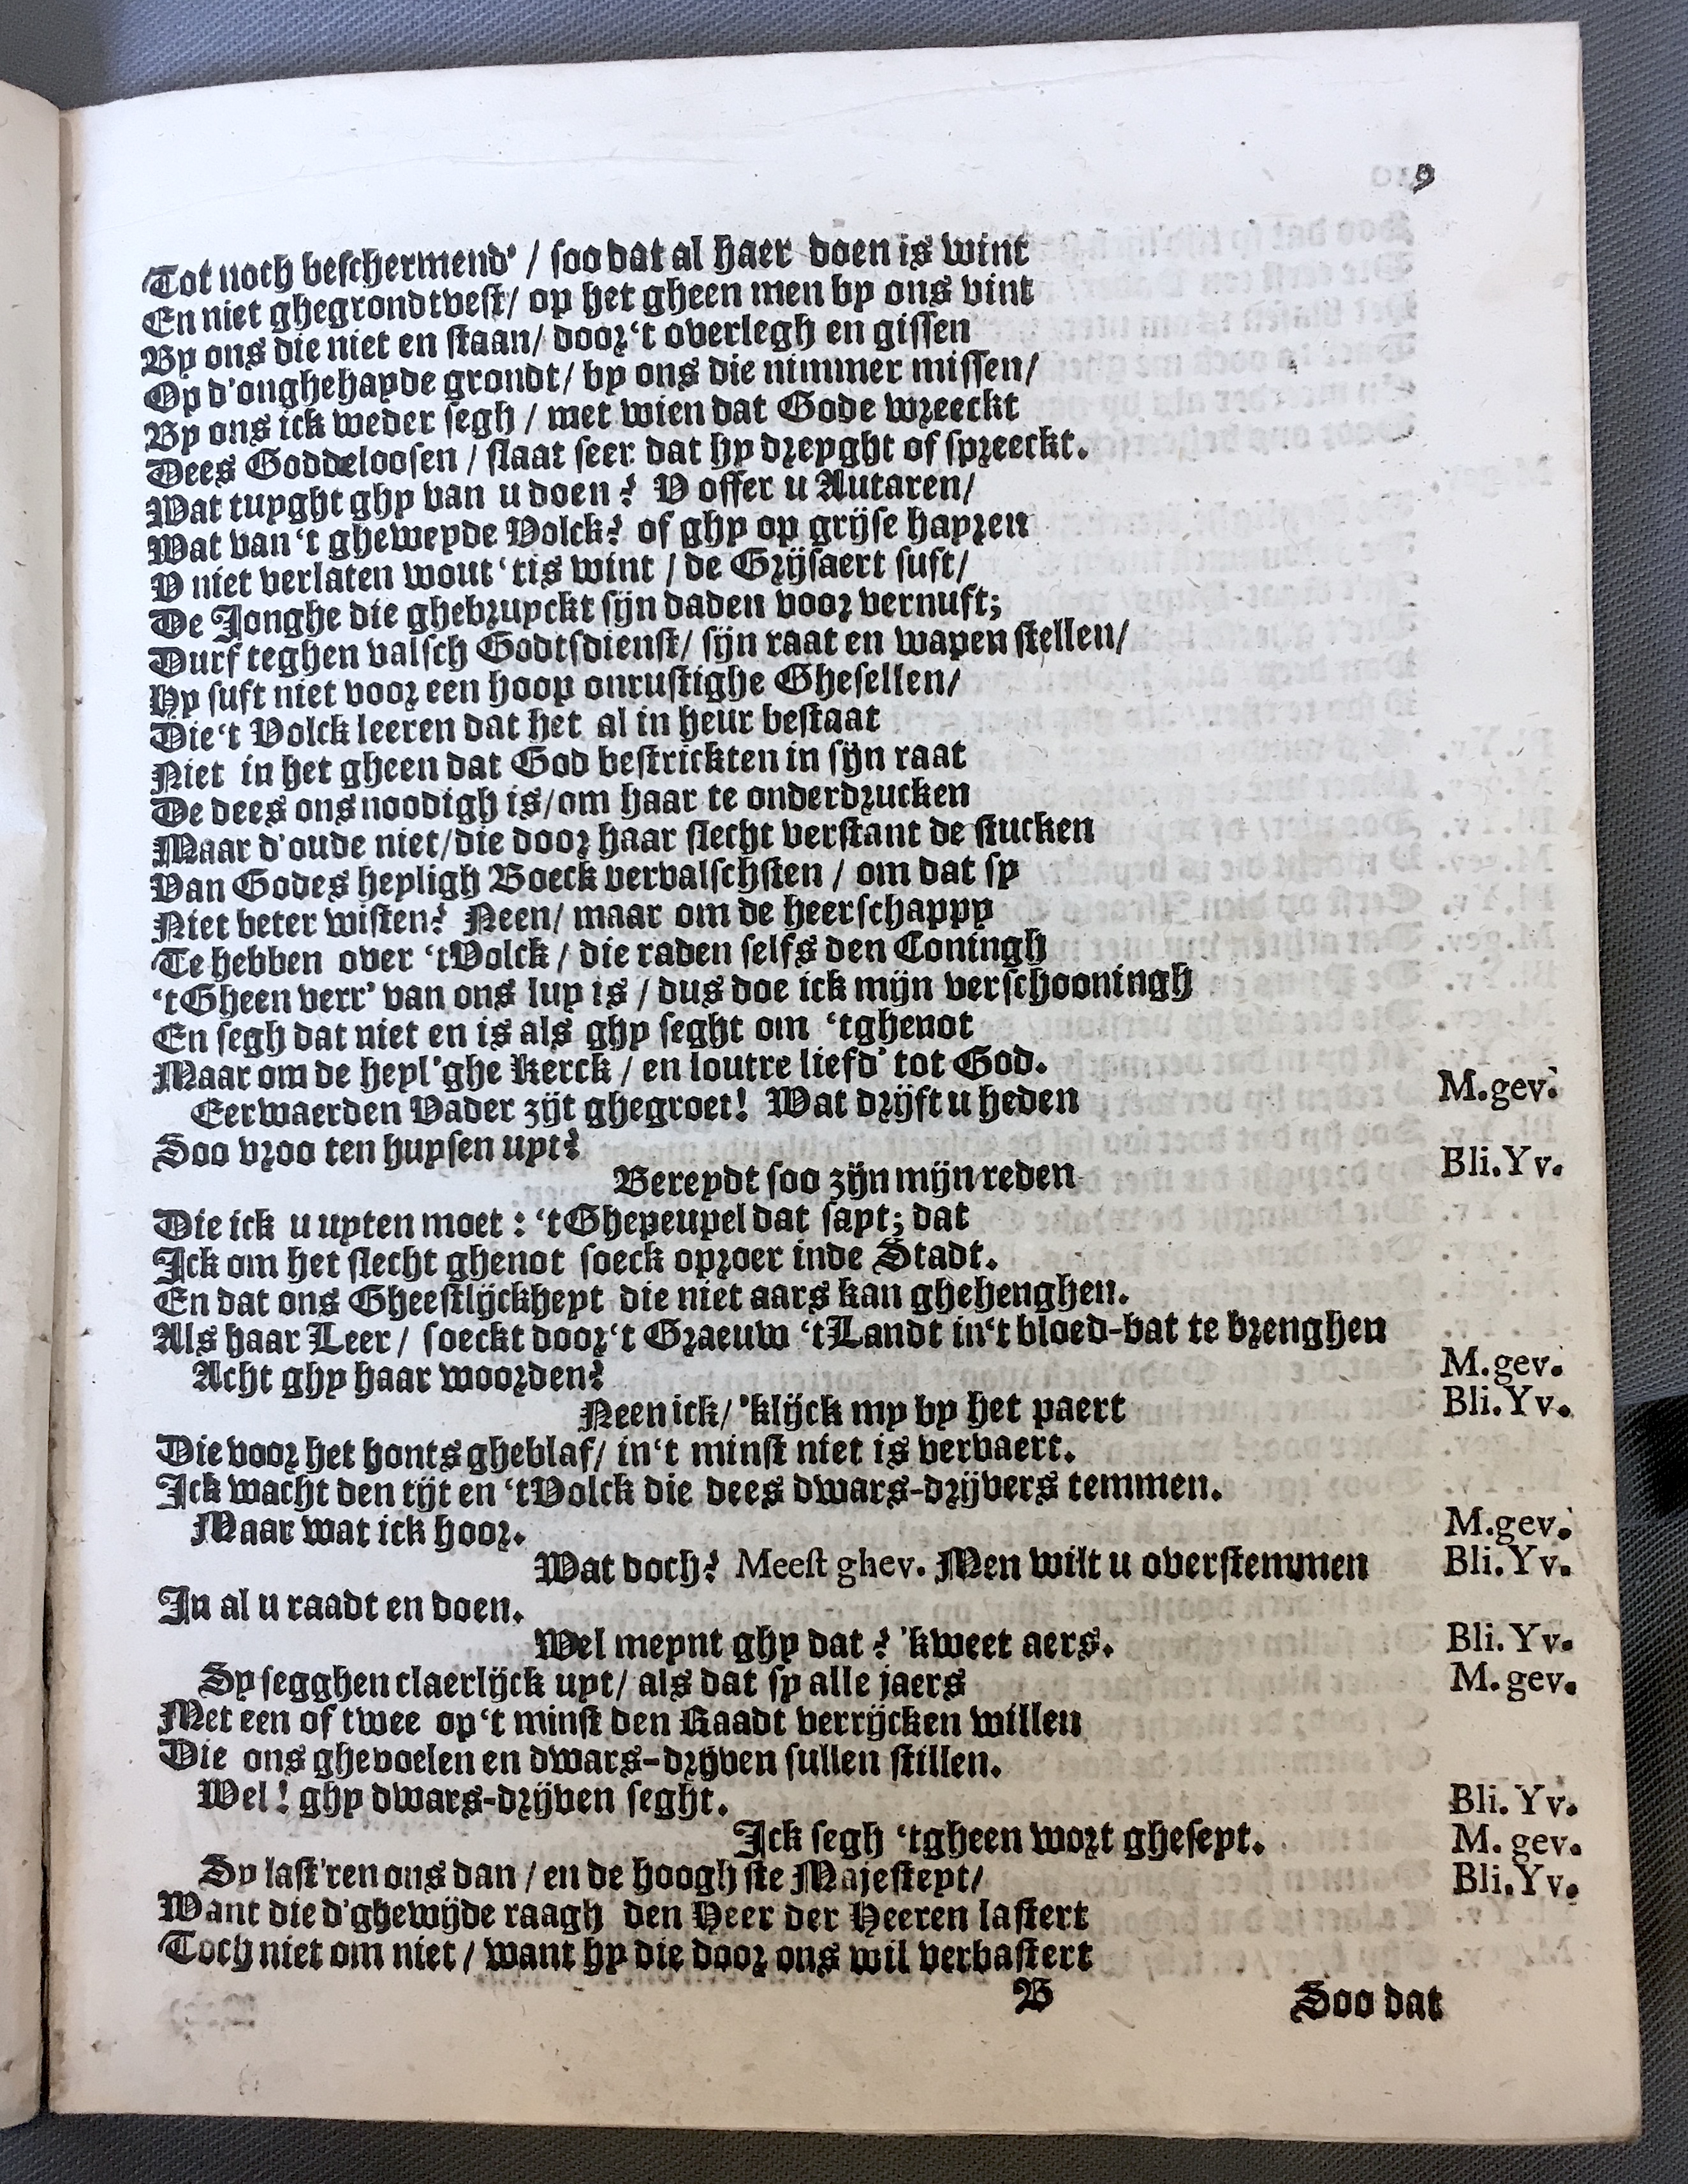 9
Tot noch beschermend' / soo dat al haer doen is wint
En niet ghegrondtvest / op het gheen men by ons vint
By ons die niet en staan / door 't overlegh en gissen
Op d'onghehayde grondt / by ons die nimmer missen /
By ons ick weder segh / met wien dat Gode wreeckt
Dees Goddeloosen / slaat seer dat hy dreyght of spreeckt.
Wat tuyght ghy van u doen? V offer u Autaren /
Wat van 't gheweyde Volck? of ghy op grijse hayren
V niet verlaten wout 'tis wint / de Grijsaert suft /
De Jonghe die ghebruyckt sijn daden voor vernuft;
Durf teghen valsch Godtsdienst / sijn raat en wapen stellen /
Hy suft niet voor een hoop onrustighe Ghesellen /
Die 't Volck leeren dat het al in heur bestaat
Niet in het gheen dat God bestrickten in sijn raat
De dees ons noodigh is / om haar te onderdrucken
Maar d'oude niet / die door haar slecht verstant de stucken
Van Godes heyligh Boeck vervalschsten / om dat sy
Niet beter wisten? Neen / maar om de heerschappy
Te hebben over 't Volck / die raden selfs den Coningh
't Gheen verr' van ons luy is / dus doe ick mijn verschooningh
En segh dat niet en is als ghy seght om 'tghenot
Maar om de heyl'ghe Kerck / en loutre liefd' tot God.
Eerwaerden Vader zijt ghegroet! Wat drijft u heden M.gev.
Soo vroo ten huysen uyt?
Bereydt soo zijn mijn reden Bli.Yv.
Die ick u uyten moet: 't Ghepeupel dat sayt; dat
Ick om het slecht ghenot soeck oproer inde Stadt.
En dat ons Gheestlijckheyt die niet aars kan ghehenghen.
Als haar Leer / soeckt door 't Graeuw 't Landt in 't bloed-bat te brenghen
Acht ghy haar woorden? M.gev.
Neen ick / 'klijck my by het paert Bli.Yv.
Die voor het honts gheblaf / in 't minst niet is vervaert.
Ick wacht den tijt en 't Volck die dees dwars-drijvers temmen.
Maar wat ick hoor. M.gev.
Wat doch? Meest ghev. Men wilt u overstemmen Bli.Yv.
In al u raadt en doen.
Wel meynt ghy dat? 'kweet aers. Bli.Yv.
Sy segghen claerlijck uyt / als dat sy alle jaers M.gev.
Met een of twee op 't minst den Raadt verrijcken willen
Die ons ghevoelen en dwars-drijven sullen stillen.
Wel! ghy dwars-drijven seght. Bli.Yv.
Ick segh 'tgheen wort gheseyt. M.gev.
Sy last'ren ons dan / en de hooghste Majesteyt / Bli.Yv.
Want die d'ghewijde raagh den Heer der Heeren lastert
Toch niet om niet / want hy die door ons wil verbastert
B Soo dat